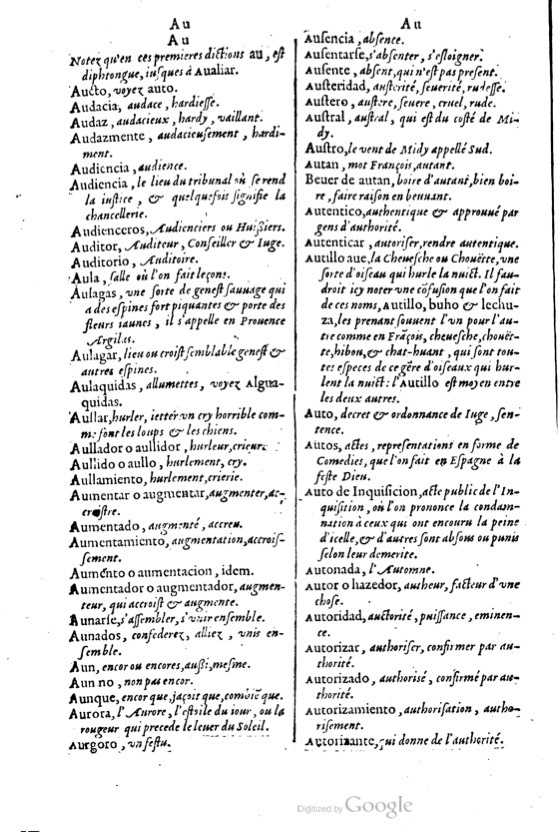 Au
Au
Notez qu'en ces premieres dictions au, est
diphtongue, iusques à Aualiar.
Aucto, voyez auto.
Audacia, audace, hardiesse.
Audaz, audacieux, hardy, vaillant.
Audazmente, audacieusement, hardi-
ment.
Audiencia, audience.
Audiencia, le lieu du tribunal où se rend
la iustice, & quelquefois signifie la
chancellerie.
Audienceros, Audienciers ou Huissiers.
Auditor, Auditeur, Conseiller & Iuge.
Auditorio, Auditoire.
Aula, salle où l'on fait leçons.
Aulagas, vne sorte de genest sauuage qui
a des espines fort piquantes & porte des
fleurs iaunes, il s'appelle en Prouence
Argilas.
Aulagar, lieu ou croist semblable genest &
autres espines.
Aulaquidas, allumettes, voyez Algua-
quidas.
Aullar, hurler, ietter vn cry horrible com-
me font les loups & les chiens.
Aullador o aullidor, hurleur, crieur.
Aullido o aullo, hurlement, cry.
Aullamiento, hurlement, crierie.
Aumentar o augmentar, augmenter, ac-
croistre.
Aumentado, augmenté, accreu.
Aumentamiento, augmentation, accrois-
sement.
Aumẽnto o aumentacion, idem.
Aumentador o augmentador, augmen-
teur, qui accroist & augmente.
Aunarse, s'assembler, s'vnir ensemble.
Aunados, confederez, alliez, vnis en-
semble.
Aun, encor ou encores, aussi, mesme.
Aun no, non pas encor.
Aunque, encor que, jaçoit que, combiẽ que.
Aurora, l'Aurore, l'estoile du iour, ou la
rougeur qui precede le leuer du Soleil.
Aurgoro, vn festu.
Au
Ausencia, absence.
Ausentarse, s'absenter, s'esloigner.
Ausente, absent, qui n'est pas present.
Austeridad, austerité, seuerité, rudesse.
Austero, austere, seuere, cruel, rude.
Austral, austral, qui est du costé de Mi-
dy.
Austro, le vent de Midy appellé Sud.
Autan, mot François, autant.
Beuer de autan, boire d'autant, bien boi-
re, faire raison en beuuant.
Autentico, authentique & approuué par
gens d'authorité.
Autenticar, autoriser, rendre autentique.
Autillo aue, la Cheuesche ou Chouëtte, vne
sorte d'oiseau qui hurle la nuict. Il fau-
droit icy noter vne cõfusion que l'on fait
de ces noms, Autillo, buho & lechu-
za, les prenant souuent l'vn pour l'au-
tre comme en Frãçois, cheuesche, chouët-
te, hibou, & chat-huant, qui sont tou-
tes especes de ce gẽre d'oiseaux qui hur-
lent la nuict: l'Autillo est moyen entre
les deux autres.
Auto, decret & ordonnance de Iuge, sen-
tence.
Autos, actes, representations en forme de
Comedies, que l'on fait en Espagne à la
feste Dieu.
Auto de Inquisicion, acte public de l'In-
quisition, où l'on prononce la condam-
nation à ceux qui ont encouru la peine
d'icelle, & d'autres sont absous ou punis
selon leur demerite.
Autonada, l'Automne.
Autor o hazedor, autheur, facteur d'vne
chose.
Autoridad, auctorité, puissance, eminen-
ce.
Autorizar, authoriser, confirmer par au-
thorité.
Autorizado, authorisé, confirmé par au-
thorité.
Autorizamiento, authorisation, autho-
risement.
Autorizante, qui donne de l'authorité.
Digitized by Google